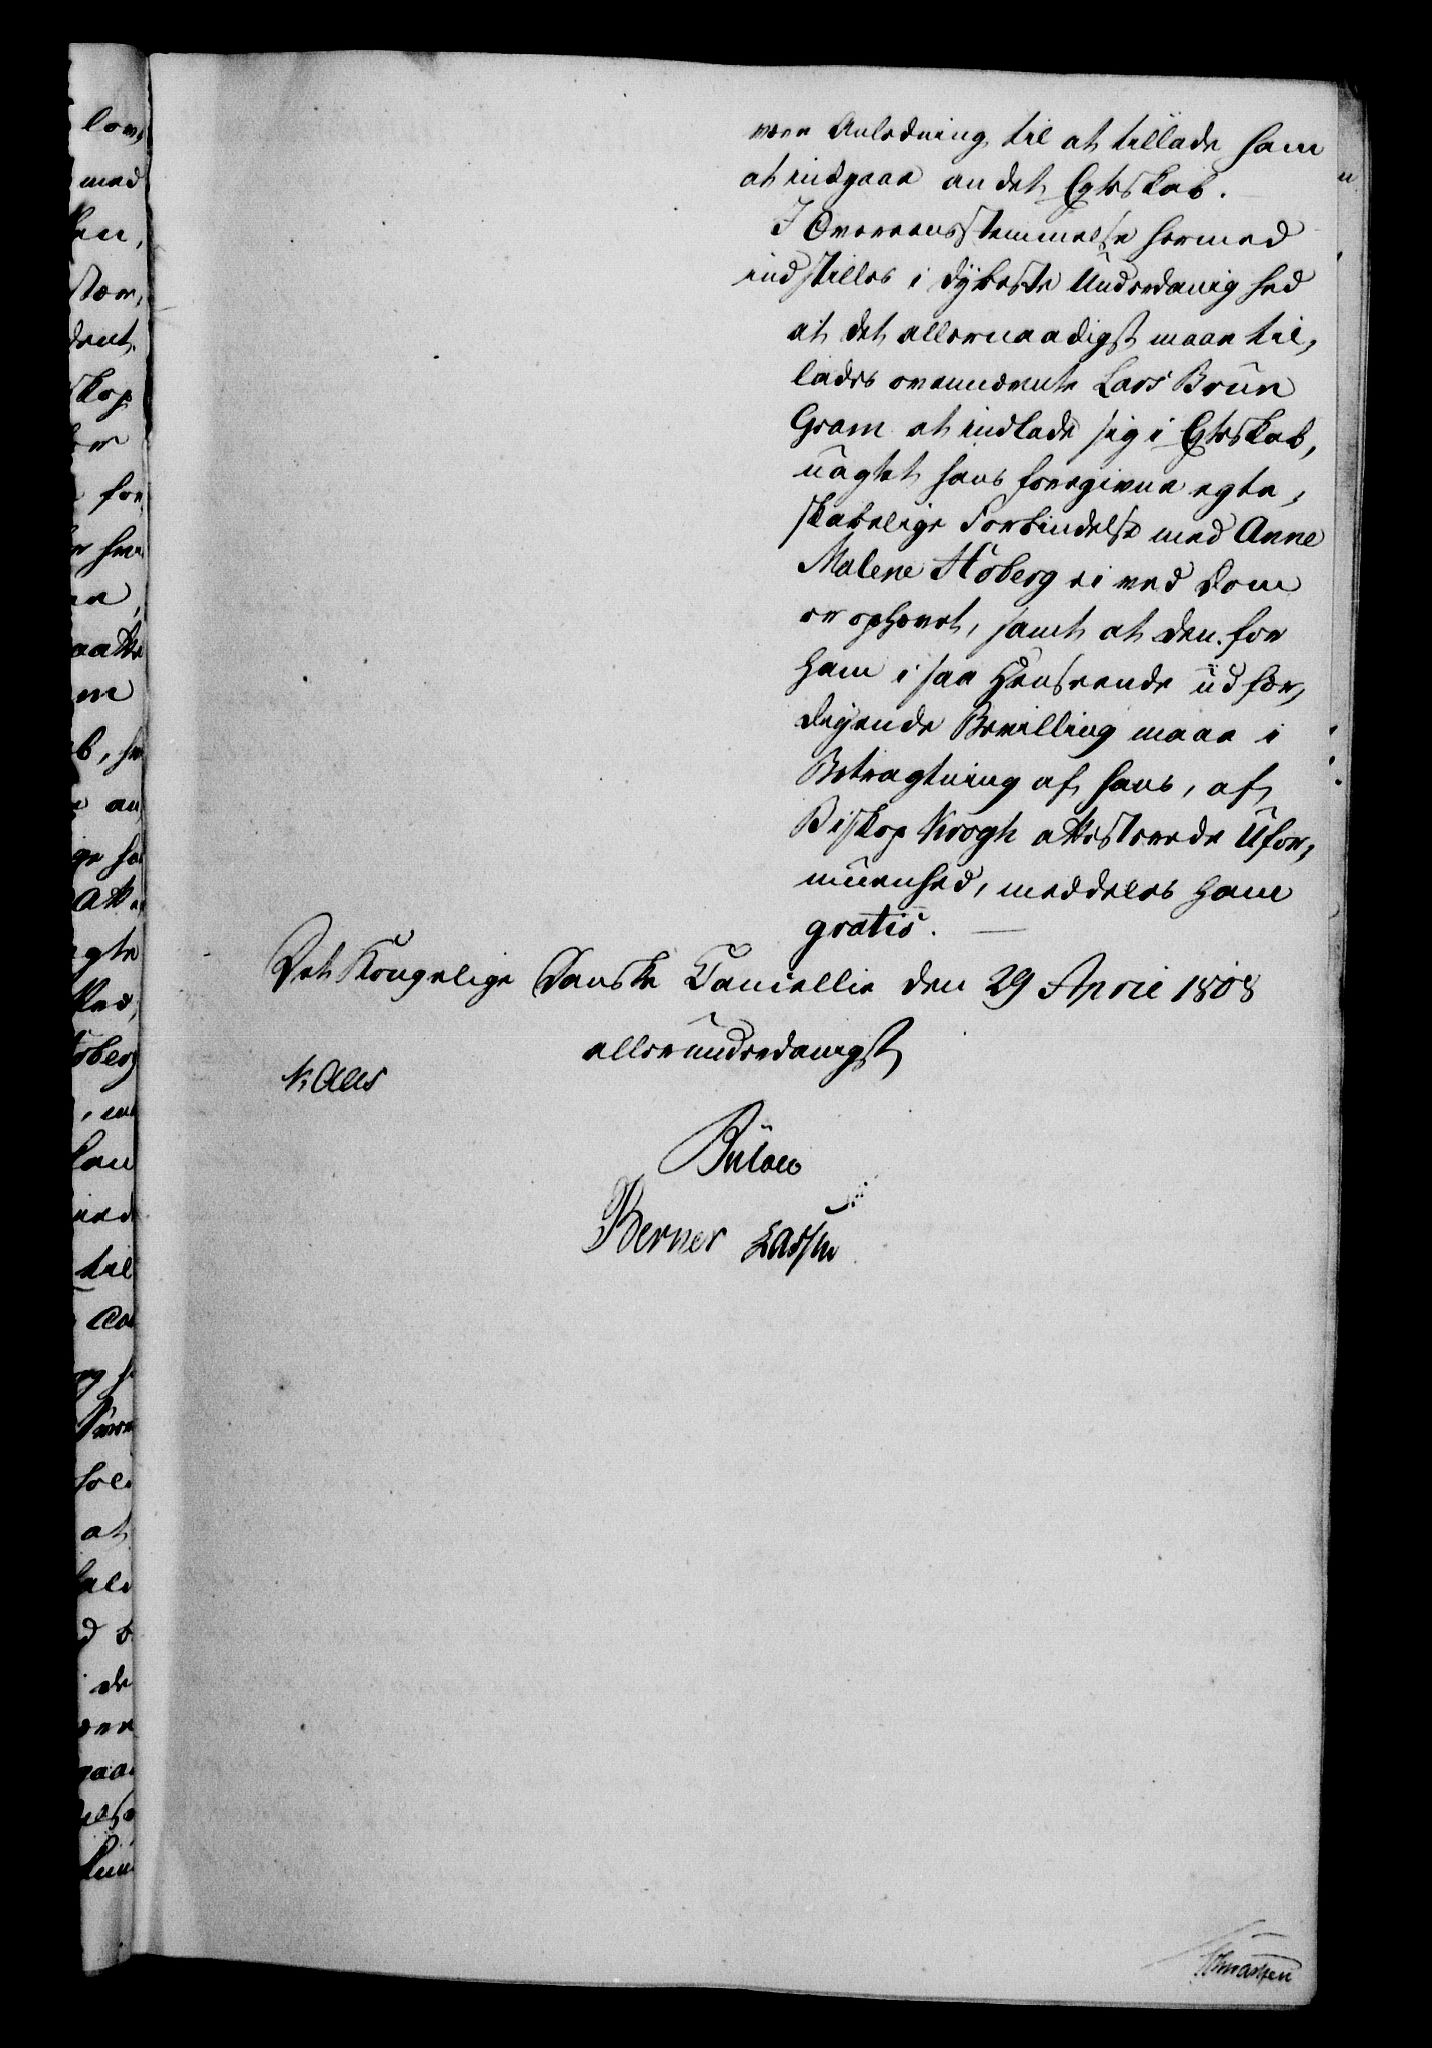 være Anledning til at tillade ham
at indgaae andet Egteskab.
I Overeensstemmelse hermed
indstilles i dybeste Underdanighed
at det allernaadigst maae til,
lades ovennævnte Lars Brun
Gram at indlade sig i Egteskab,
uagtet hans foregivne egte,
skabelige Forbindelse med Anne
Malene Hoberg ei ved Dom
er ophævet, samt at den for
ham i saa Henseende udfær,
digende Bevilling maae i
Betragtning af hans, af
Biskop Krogh attesterede Ufor,
muenhed, meddeles ham
gratis.
Det Kongelige Danske Cancellie den 29 April 1808
allerunderdanigst
Bülow
Berner Lassen